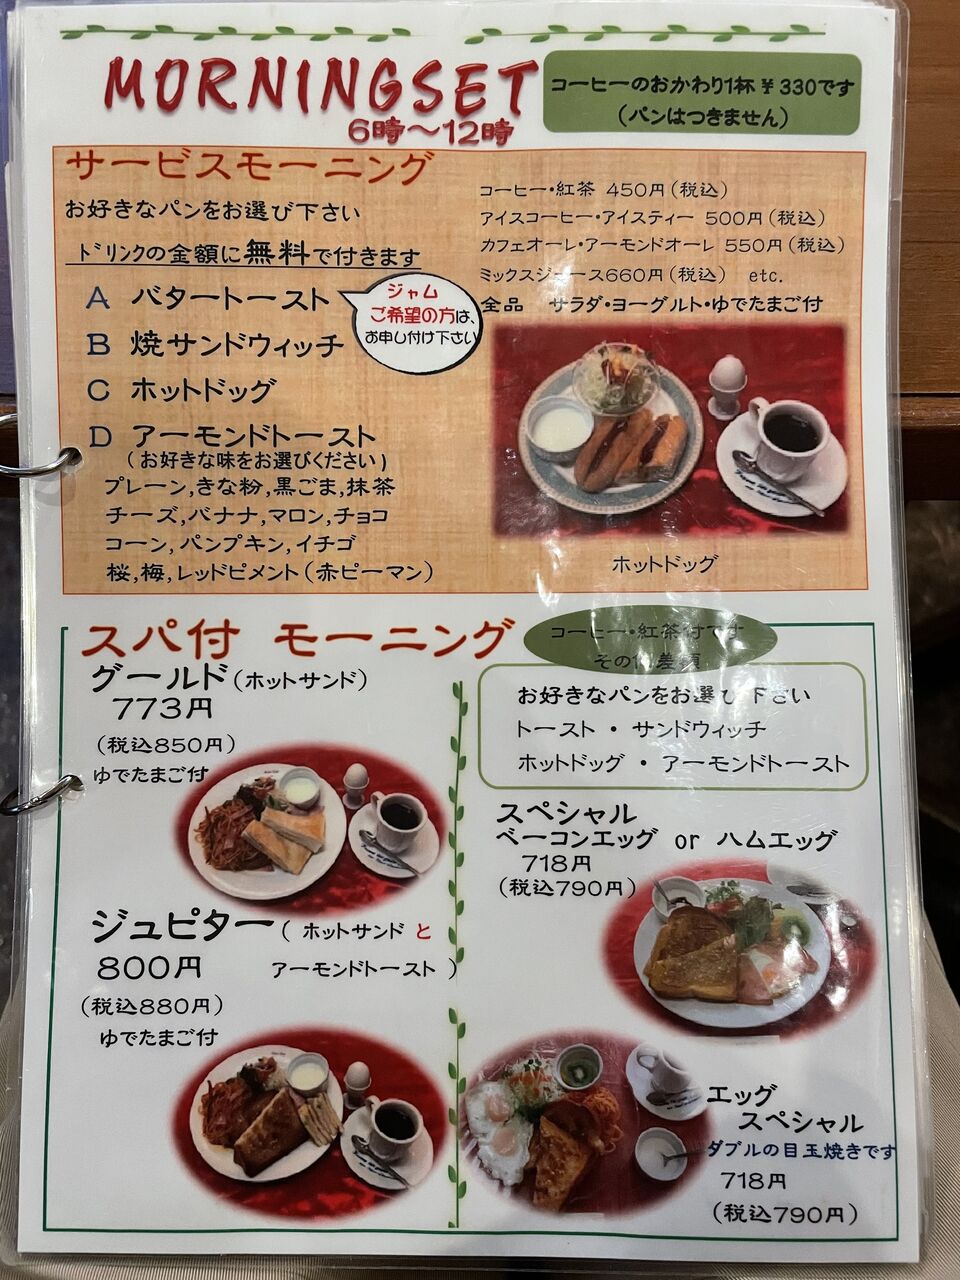 MORNINGSET
6時～12時
コーヒーのおかわり1杯￥330です
(パンはつきません)
サービスモーニング
お好きなパンをお選び下さい
ドリンクの金額に無料で付きます
A バタートースト
B 焼サンドウィッチ
C ホットドッグ
D アーモンドトースト
(お好きな味をお選びください)
プレーン,きな粉,黒ごま,抹茶
チーズ,バナナ,マロン,チョコ
コーン,パンプキン,イチゴ
桜,梅,レッドピメント(赤ピーマン)
ジャム
ご希望の方は、
お申し付け下さい
コーヒー・紅茶 450円(税込)
アイスコーヒー・アイスティー 500円(税込)
カフェオーレ・アーモンドオーレ 550円(税込)
ミックスジュース660円(税込) etc.
全品 サラダ・ヨーグルト・ゆでたまご付
ホットドッグ
スパ付 モーニング
コーヒー・紅茶付です
その他差額
グールド(ホットサンド)
773円
(税込850円)
ゆでたまご付
ジュピター(ホットサンドと
800円 アーモンドトースト)
(税込880円)
ゆでたまご付
お好きなパンをお選び下さい
トースト・サンドウィッチ
ホットドッグ・アーモンドトースト
スペシャル
ベーコンエッグ or ハムエッグ
718円
(税込790円)
エッグ
スペシャル
ダブルの目玉焼きです
718円
(税込790円)